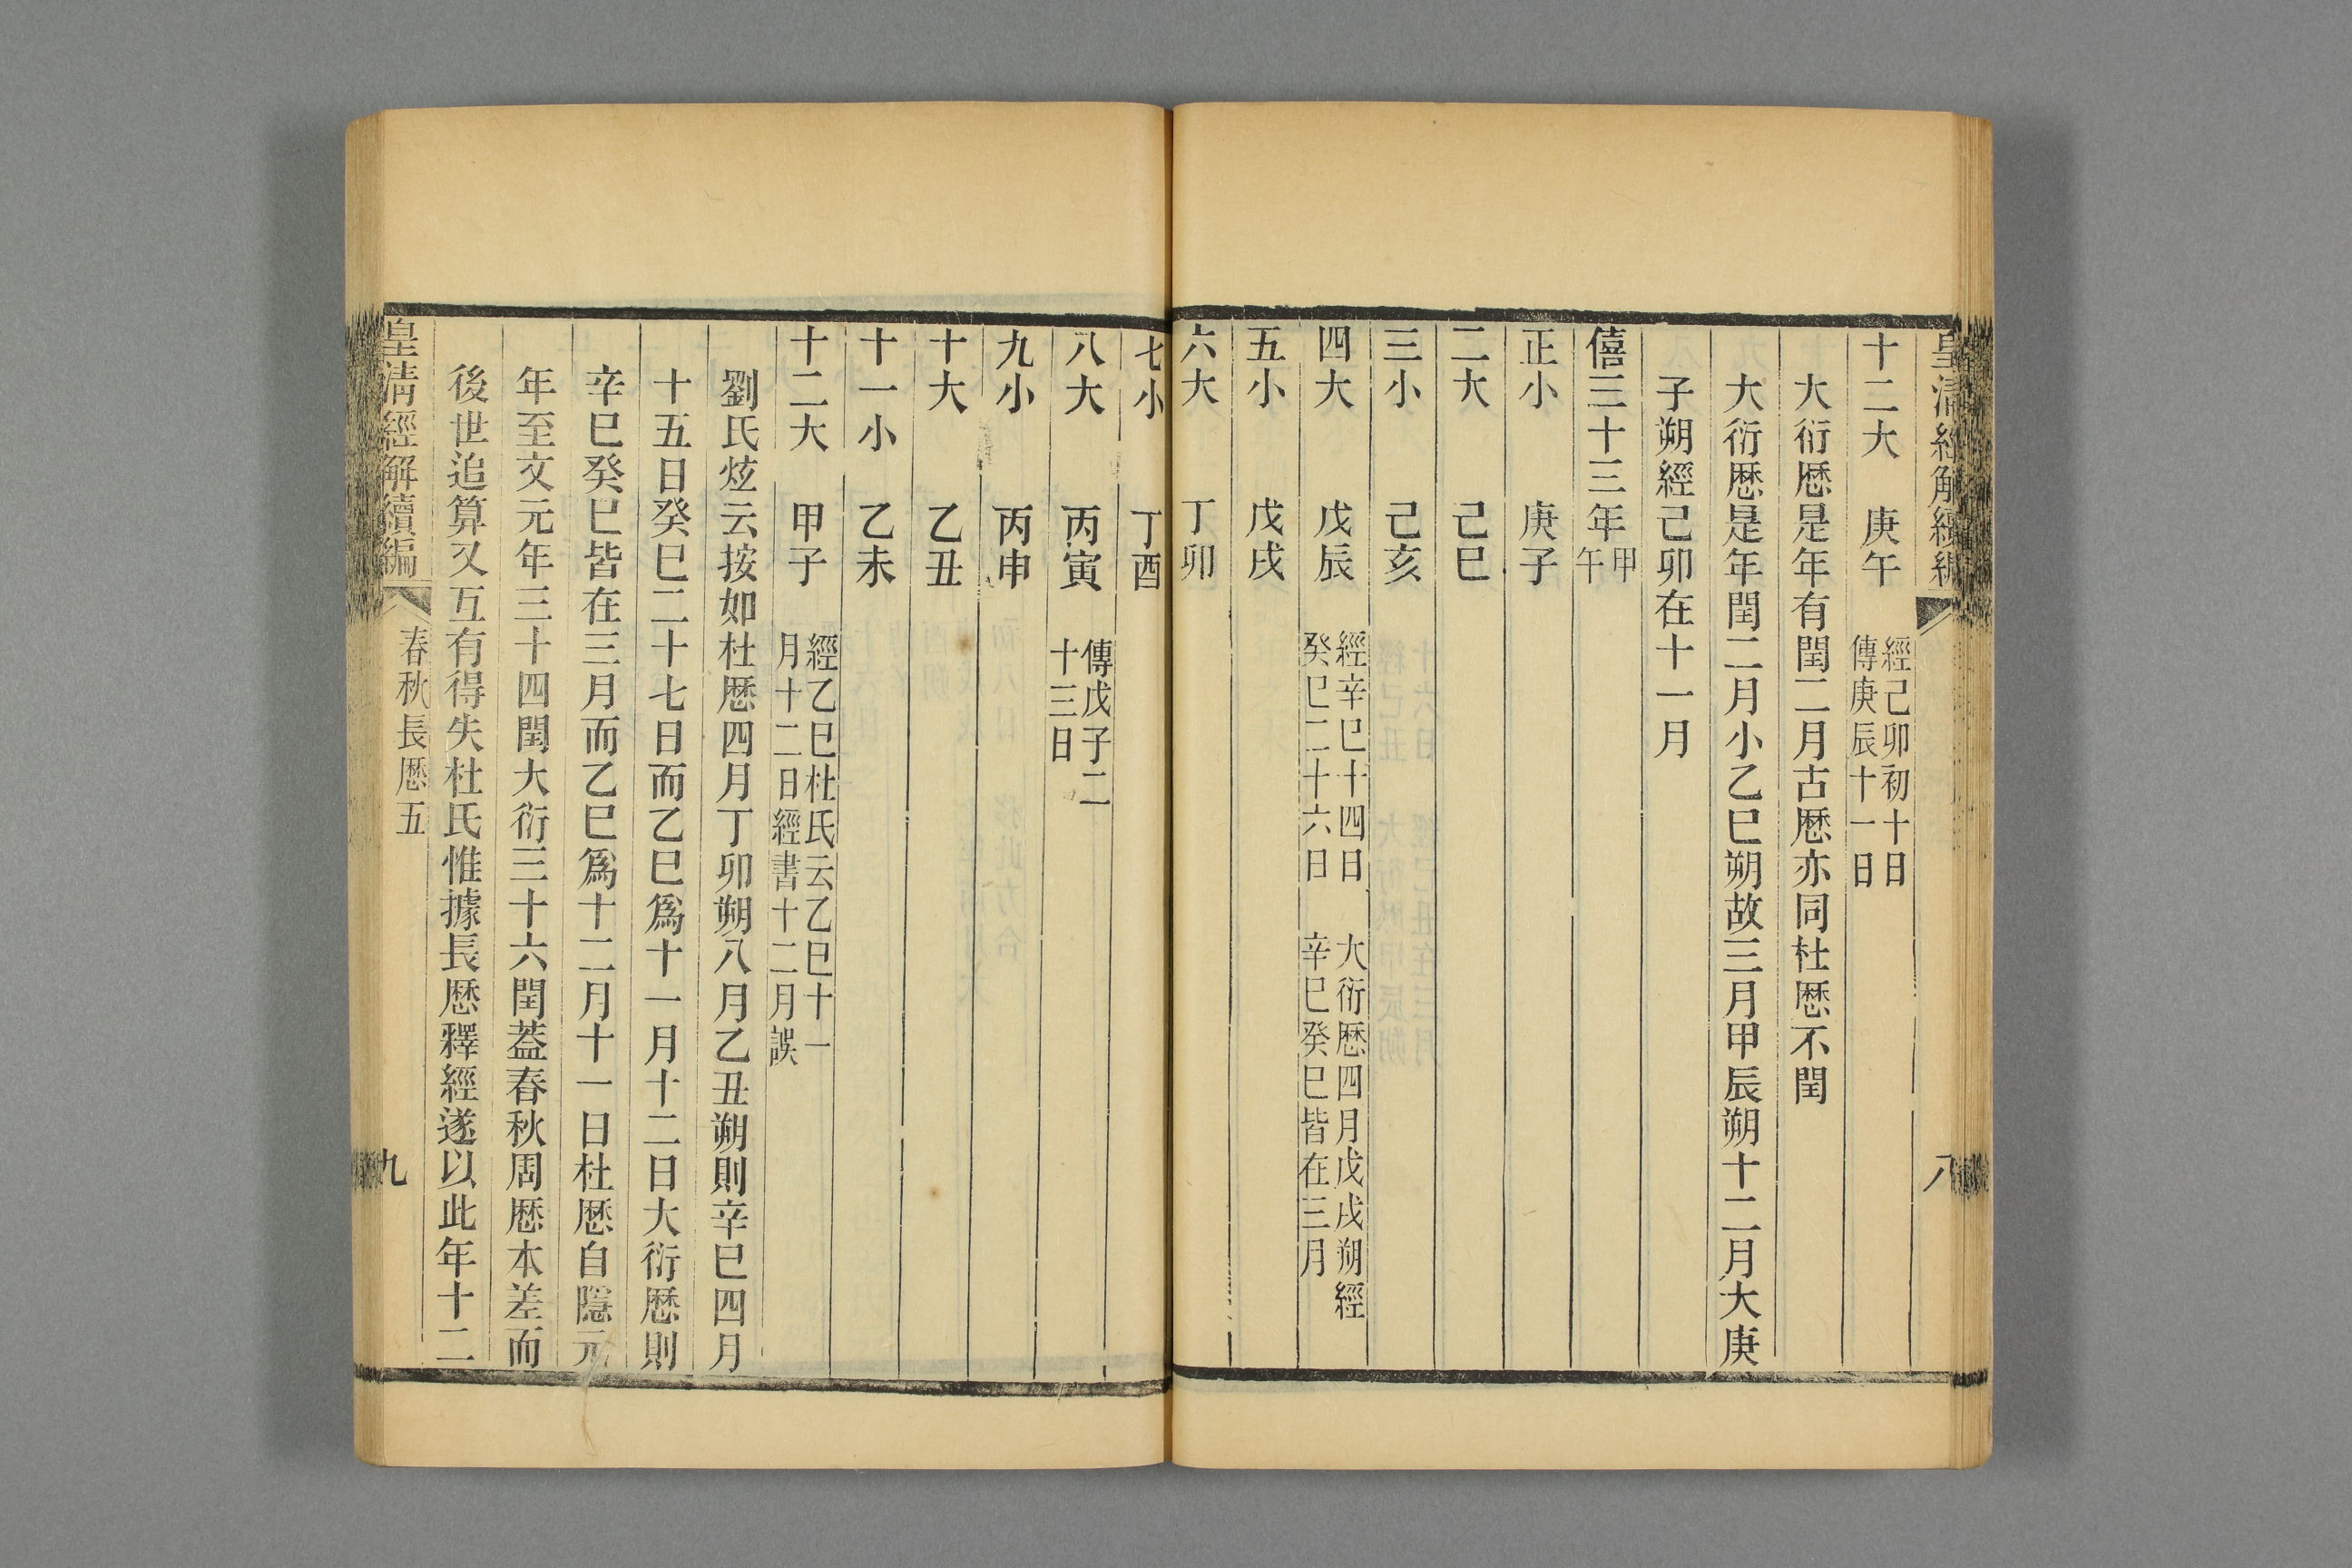 皇清經解續編
八
十二大 庚午 經己卯初十日
傳庚辰十一日
大衍厯是年有閏二月古厯亦同杜厯不閏
大衍厯是年閏二月小乙巳朔故三月甲辰朔十二月大庚
子朔經己卯在十一月
僖三十三年甲
午
正小 庚子
二大 己巳
三小 己亥
四大 戊辰 經辛巳十四日 大衍厯四月戊戌朔經
癸巳二十六日 辛巳癸巳皆在三月
五小 戊戌
六大 丁卯
七小 丁酉
八大 丙寅 傳戊子二
十三日
九小 丙申
十大 乙丑
十一小 乙未
十二大 甲子 經乙巳杜氏云乙巳十一
月十二日經書十二月誤
劉氏炫云按如杜厯四月丁卯朔八月乙丑朔則辛巳四月
十五日癸巳二十七日而乙巳爲十一月十二日大衍厯則
辛巳癸巳皆在三月而乙巳爲十二月十一日杜厯自隱元
年至文元年三十四閏大衍三十六閏蓋春秋周厯本差而
後世追算又互有得失杜氏惟據長厯釋經遂以此年十二
皇清經解續編
春秋長厯五
九